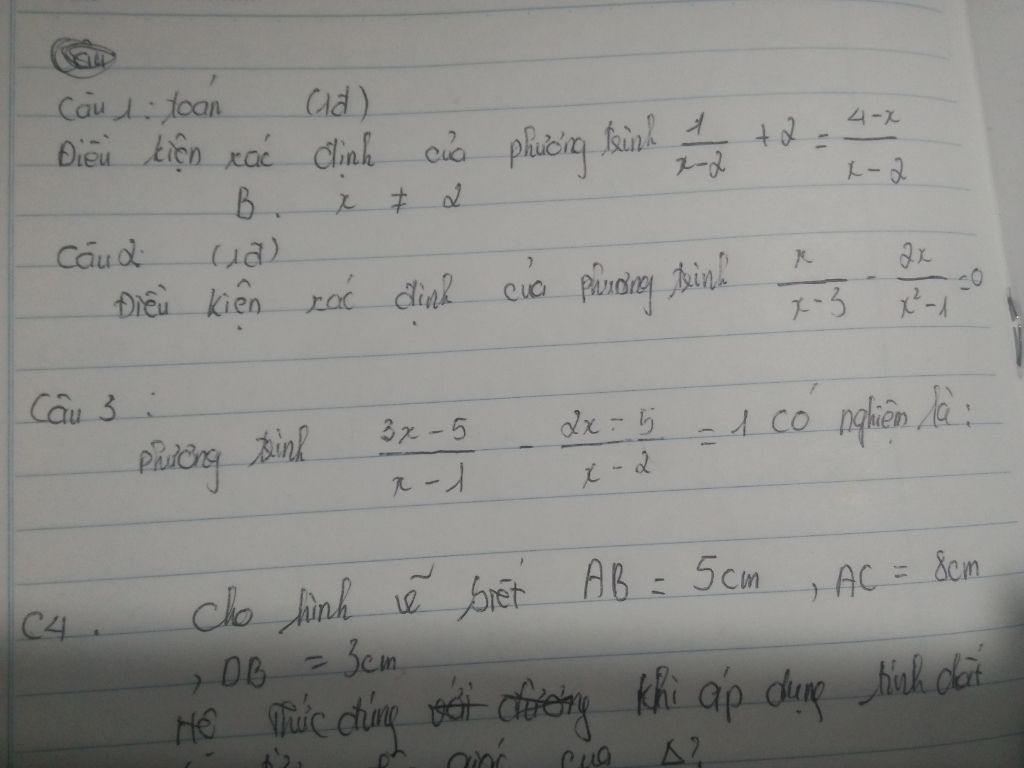 Câu 1: toán (1đ)
Điều kiện xác định của phương trình 1/(x-2) + 2 = (4-x)/(x-2)
B. x ≠ 2
Câu 2: (1đ)
Điều kiện xác định của phương trình x/(x-3) - 2x/(x²-1) = 0
Câu 3:
phương trình (3x-5)/(x-1) - (2x-5)/(x-2) = 1 có nghiệm là:
C4. Cho hình vẽ biết AB = 5cm, AC = 8cm
, DB = 3cm
Hệ thức đúng khi áp dụng tính chất
giác của Δ?